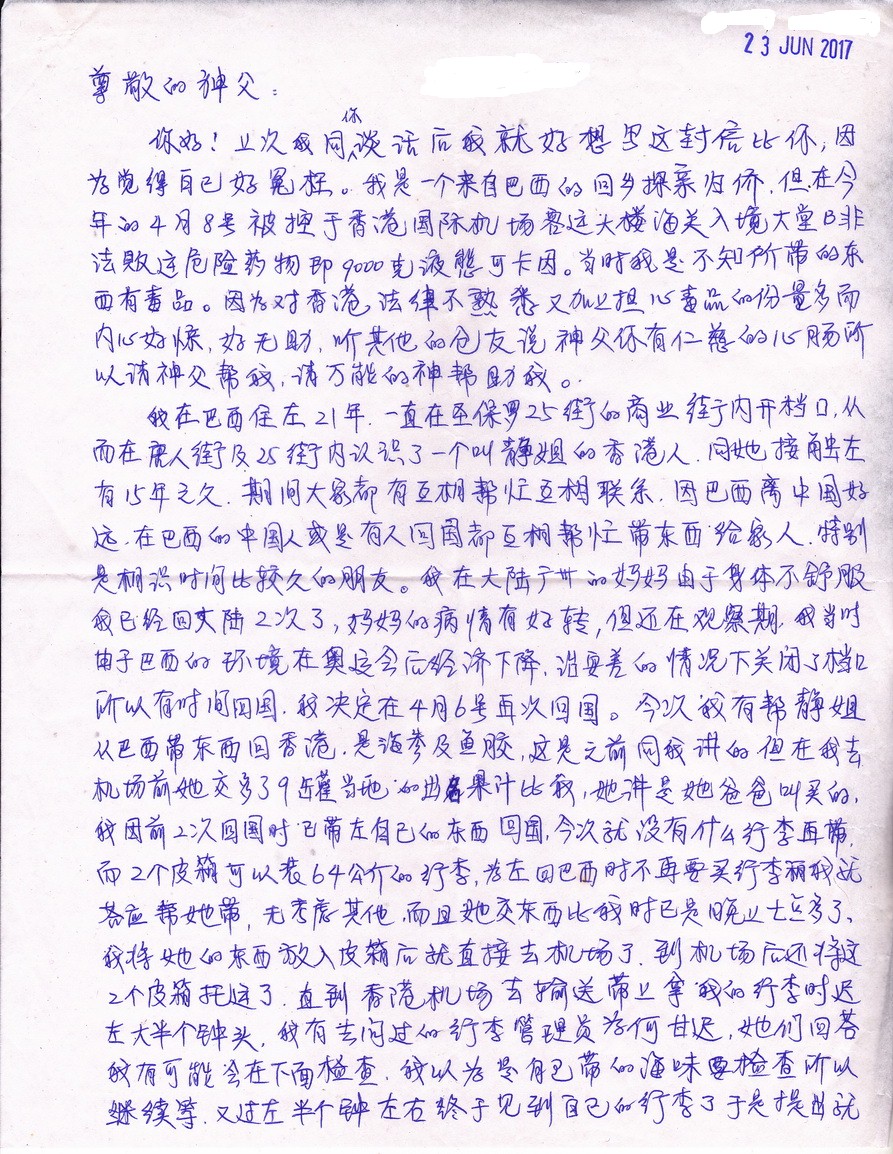 23 JUN 2017
尊敬的神父：
你
你好！上次我同谈话后我就好想写这封信比你，因
为觉得自己好冤枉。我是一个来自巴西的回乡探亲归侨，但在今
年的4月8号被控于香港国际机场客运大楼海关入境大堂B非
法贩运危险药物即9000克液态可卡因。当时我是不知所带的东
西有毒品。因为对香港法律不熟悉又加上担心毒品的份量多而
内心好惊，好无助，听其他的仓友说神父你有仁慈的心肠所
以请神父帮我，请万能的神帮助我。
我在巴西住左21年，一直在圣保罗25街的商业街内开档口，从
而在唐人街及25街内认识了一个叫静姐的香港人，同她接触左
有15年之久，期间大家都有互相帮忙互相联系，因巴西离中国好
远，在巴西的中国人或是有人回国都互相帮忙带东西给家人，特别
是相识时间比较久的朋友。我在大陆广州的妈妈由于身体不舒服
我已经回大陆2次了，妈妈的病情有好转，但还在观察期，我当时
由于巴西的环境在奥运会后经济下降，治安差的情况下关闭了档口
所以有时间回国，我决定在4月6号再次回国。今次我有帮静姐
从巴西带东西回香港，是海参及鱼胶，这是之前同我讲的但在我去
机场前她交多了9罐当地的出名果汁比我，她讲是她爸爸叫买的，
我因前2次回国时已带左自己的东西回国，今次就没有什么行李再带，
而2个皮箱可以装64公斤的行李，为左回巴西时不再要买行李箱我就
答应帮她带，无考虑其他，而且她交东西比我时已是晚上七点多了，
我将她的东西放入皮箱后就直接去机场了，到机场后还将这
2个皮箱托运了，直到香港机场去输送带上拿我的行李时迟
左大半个钟头，我有去问过的行李管理员为何甘迟，她们回答
我有可能会在下面检查，我以为是自己带的海味要检查所以
继续等，又过左半个钟左右终于见到自己的行李了于是提出就